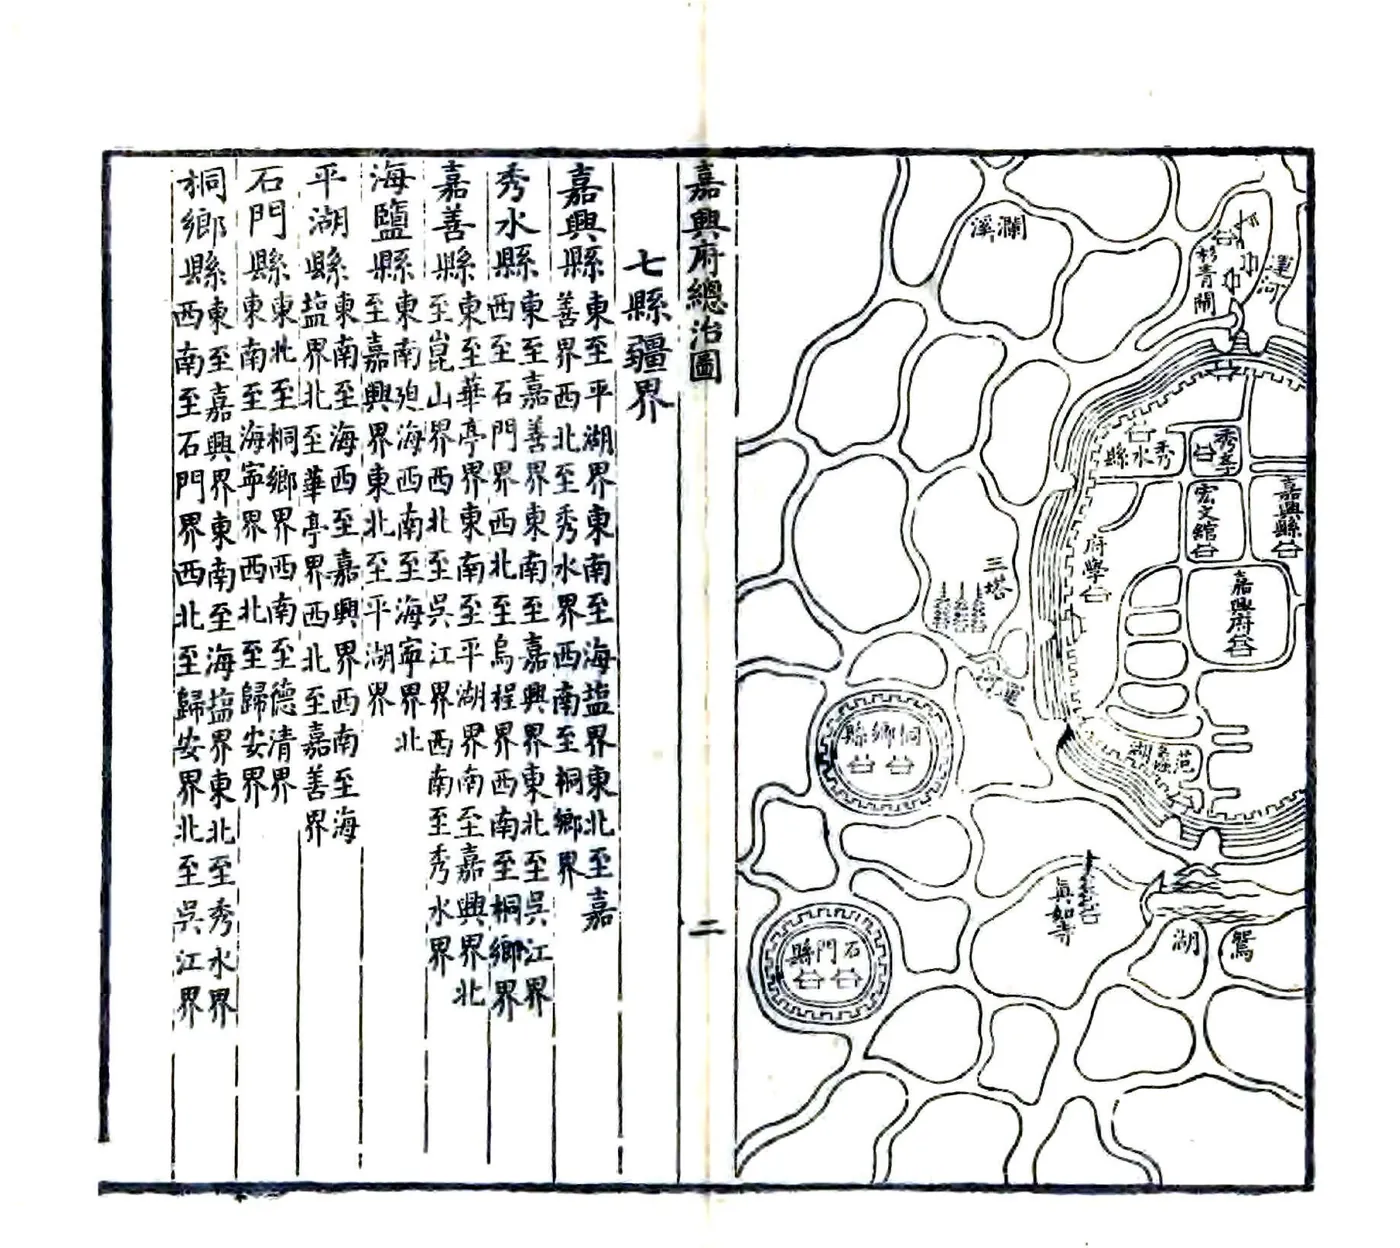 運河
杉青閘
瀾溪
秀水縣
嘉興縣
宏文館
府學
嘉興府
三塔
運河
桐鄉縣
范蠡湖
真如寺
鴛湖
石門縣
嘉興府總治圖
二
七縣疆界
嘉興縣東至平湖界東南至海塩界東北至嘉
善界西北至秀水界西南至桐鄉界
秀水縣東至嘉善界東南至嘉興界東北至吳江界
西至石門界西北至烏程界西南至桐鄉界
嘉善縣東至華亭界東南至平湖界南至嘉興界北
至崑山界西北至吳江界西南至秀水界
海鹽縣東南廹海西南至海寧界北
至嘉興界東北至平湖界
平湖縣東南至海西至嘉興界西南至海
塩界北至華亭界西北至嘉善界
石門縣東北至桐鄉界西南至德清界
東南至海寧界西北至歸安界
桐鄉縣東至嘉興界東南至海塩界東北至秀水界
西南至石門界西北至歸安界北至吳江界